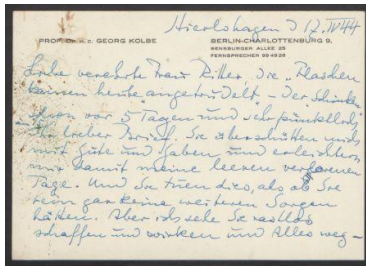 Hierlshagen d 17. IV 44
PROF. DR. H. C. GEORG KOLBE
BERLIN-CHARLOTTENBURG 9,
SENSBURGER ALLEE 25
FERNSPRECHER 99 49 28
Liebe verehrte Frau Ritter, die „Flaschen
kamen heute angetrudelt – der Schinken
schon vor 5 Tagen und sehr punktlich,
Ihr lieber Brief. Sie überschütten mich
mit Güte und Gaben und erleichtern
mir damit meine leeren verlorenen
Tage. Und Sie tuen dies, als ob Sie
sein gar keine weiteren Sorgen
hätten. Aber ich sehe Sie rastlos
schaffen und wirken und Alles weg–